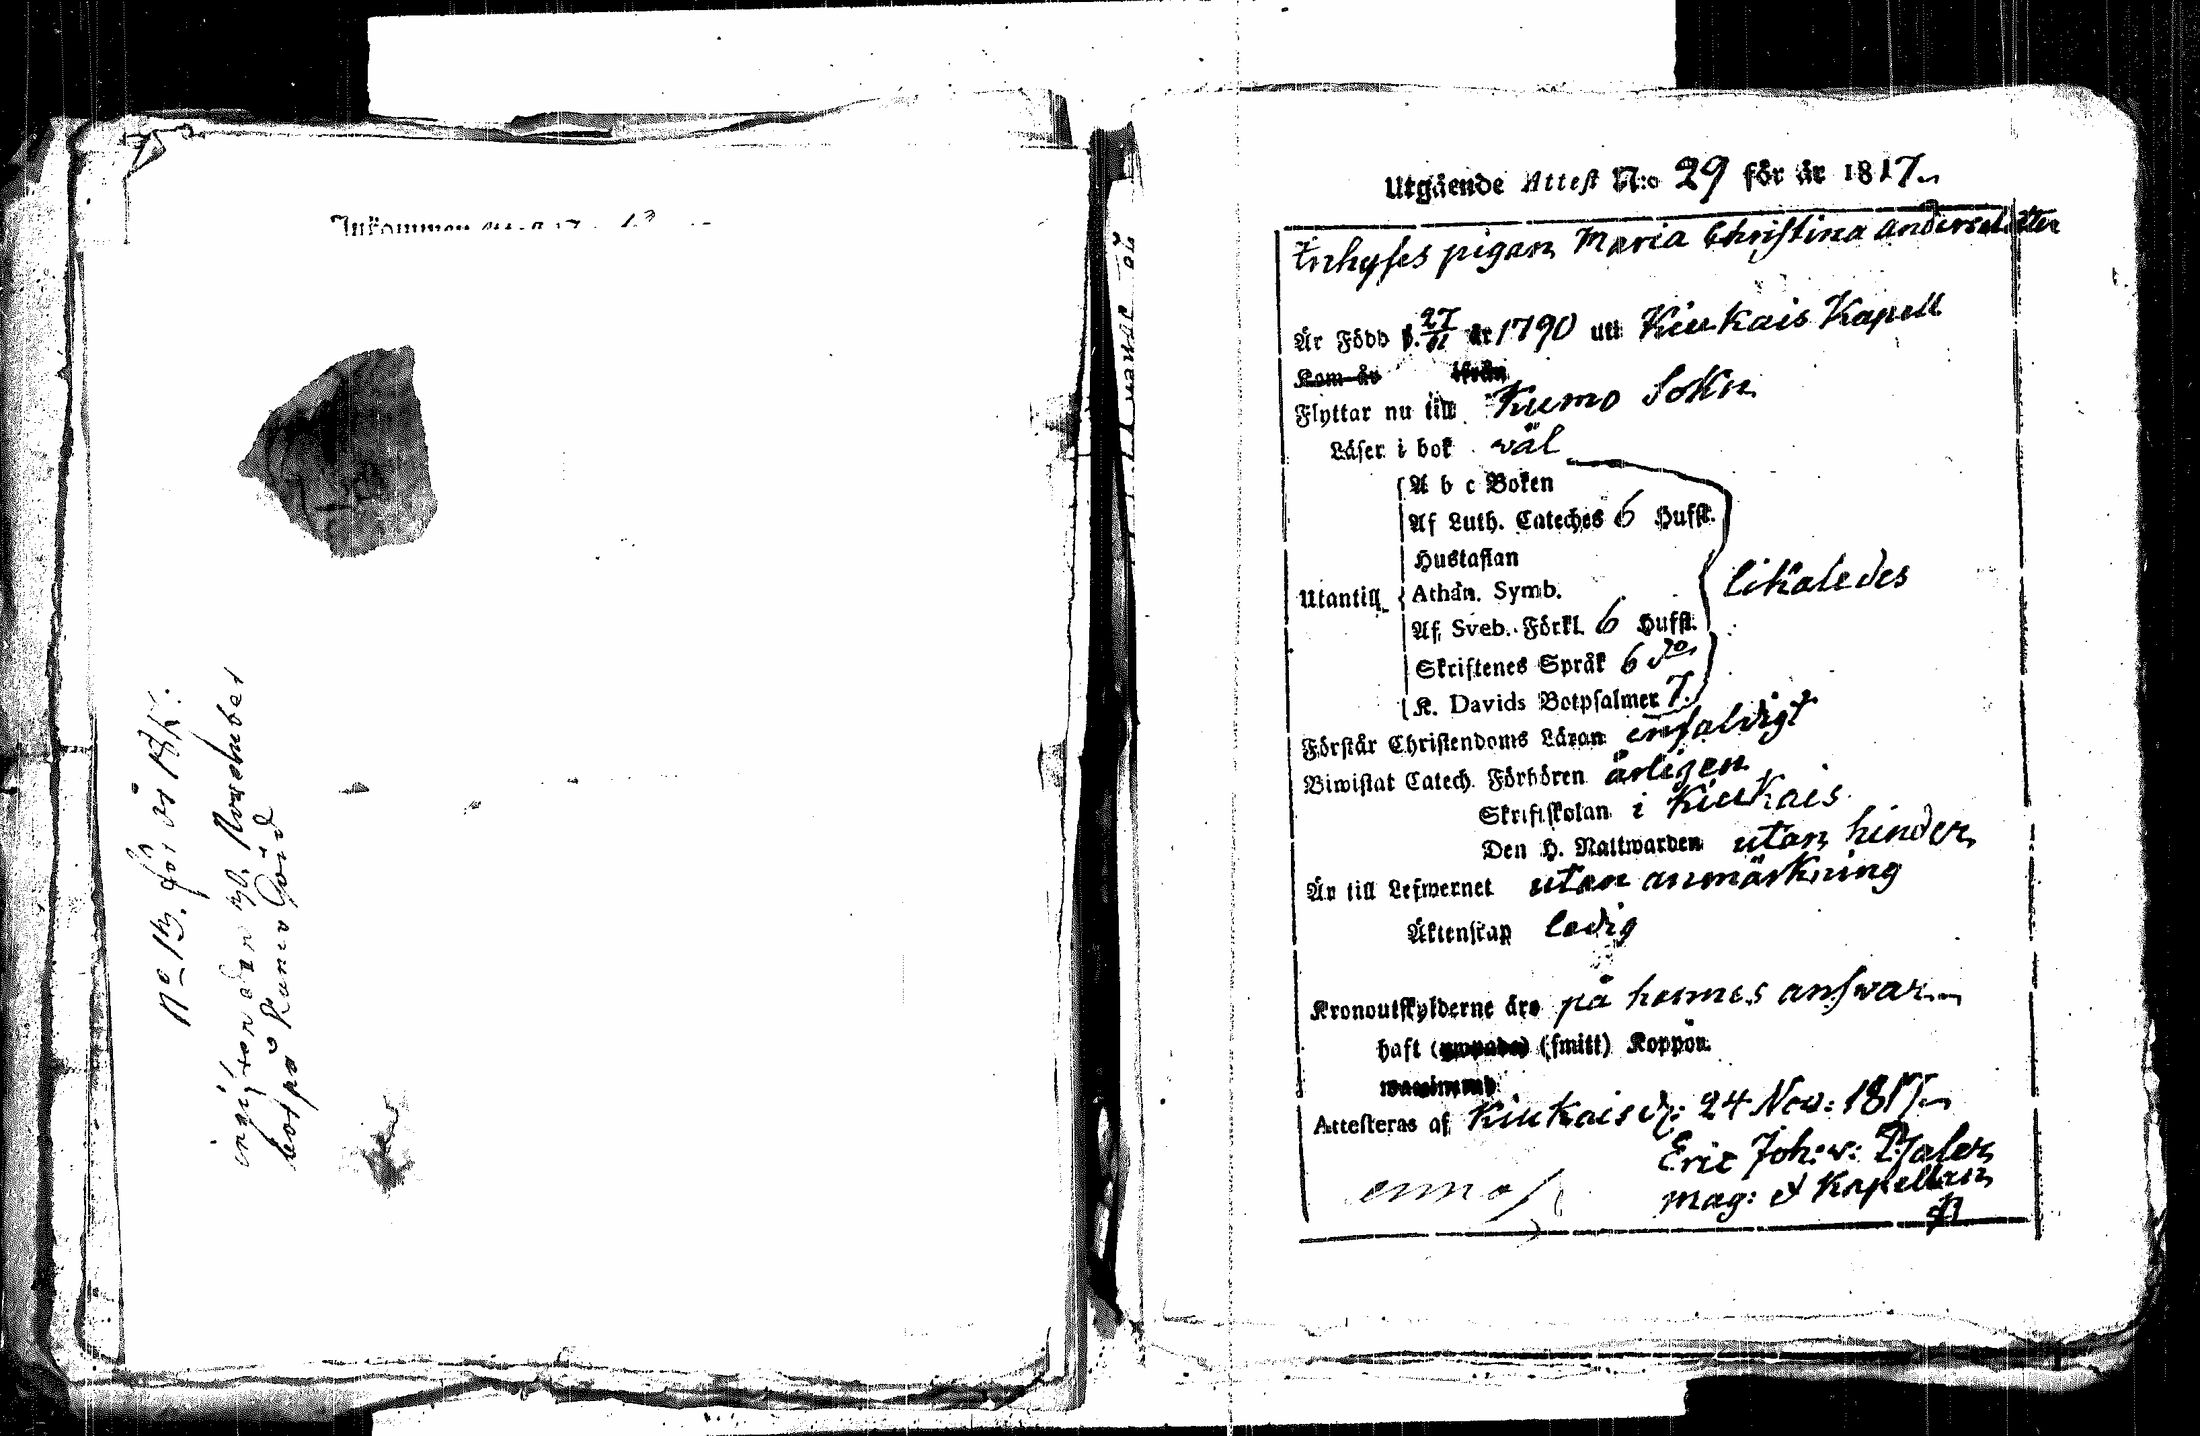 No 13. för år 1817.
den 30. November
på Kumo Gård
Utgående Attest N:o 29 för år 1817.
Inhyses pigan Maria Christina Andersdotter
Är Född d. 27/11 år 1790 uti Kiukais Kapell
Kom år ifrån
Flyttar nu till Kumo Sokn
Läser i bok wäl
A b c Boken
Af Luth. Cateches 6 Hufst.
Hustaflan
Utantill Athan. Symb. likaledes
Af Sveb. Förkl. 6 Hufst.
Skriftenes Språk 6 do
K. Davids Botpsalmer 7.
Förstår Christendoms Läran enfaldigt
Biwistat Catech. Förhören årligen
Skriftskolan i Kiukais
Den H. Nattwarden utan hinder
Är till Lefwernet utan anmärkning
Äktenskap ledig
Kronoutskylderne äro på hennes answar
haft (smitt) Koppor.
Attesteras af Kiukais d. 24 Nov: 1817
Eric Joh: v: Pfaler
Mag: & Kapellan